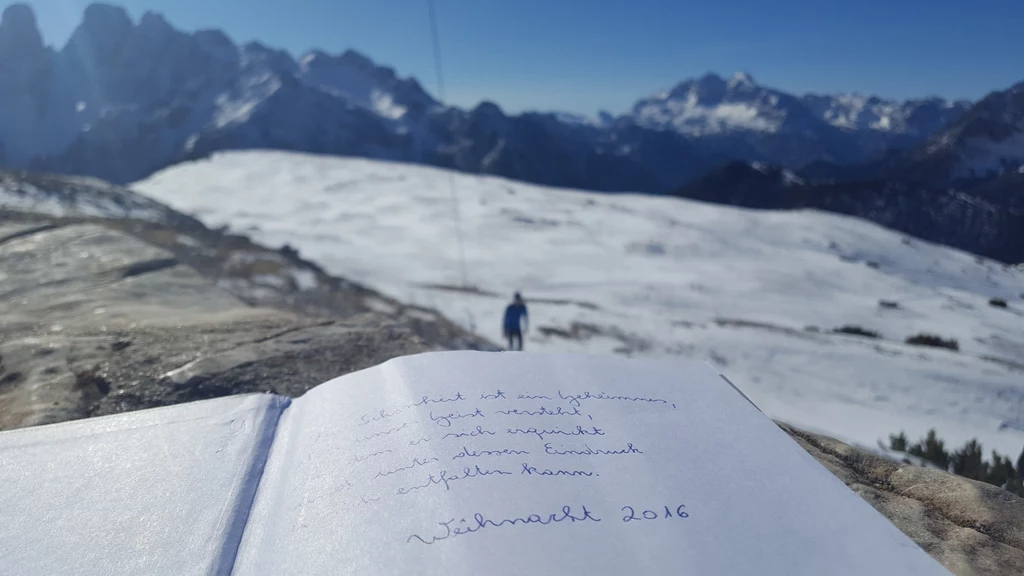 Schönheit ist ein Geheimnis,
unser Geist versteht,
er sich erquickt
unter dessen Eindruck
entfalten kann.
Weihnacht 2016